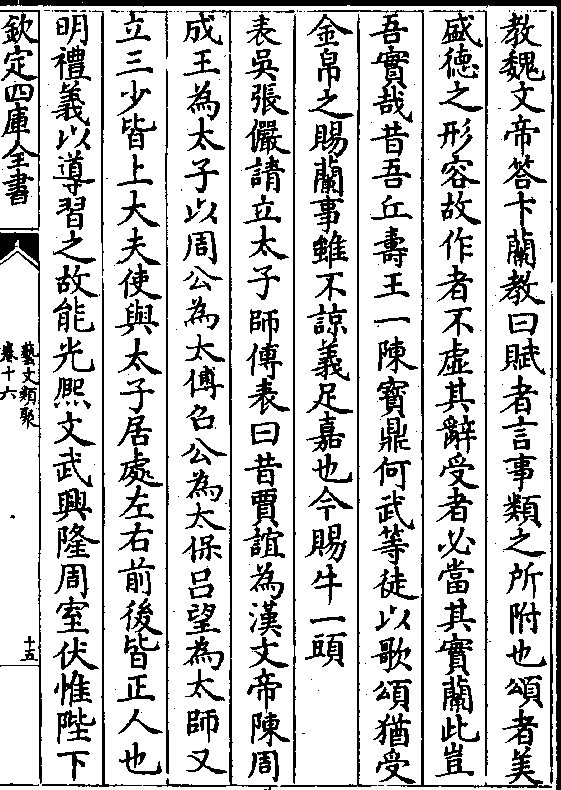 教魏文帝答卞蘭教曰賦者言事類之所附也頌者美
盛德之形容故作者不虛其辭受者必當其實蘭此豈
吾實哉昔吾丘壽王一陳寶鼎何武等徒以歌頌猶受
金帛之賜蘭事雖不諒義足嘉也今賜牛一頭
表吳張儼請立太子師傅表曰昔賈誼為漢文帝陳周
成王為太子以周公為太傅召公為太保呂望為太師又
立三少皆上大夫使與太子居處左右前後皆正人也
明禮義以導習之故能光熈文武興隆周室伏惟陛下
欽定四庫全書
藝文類聚
卷十六
十五